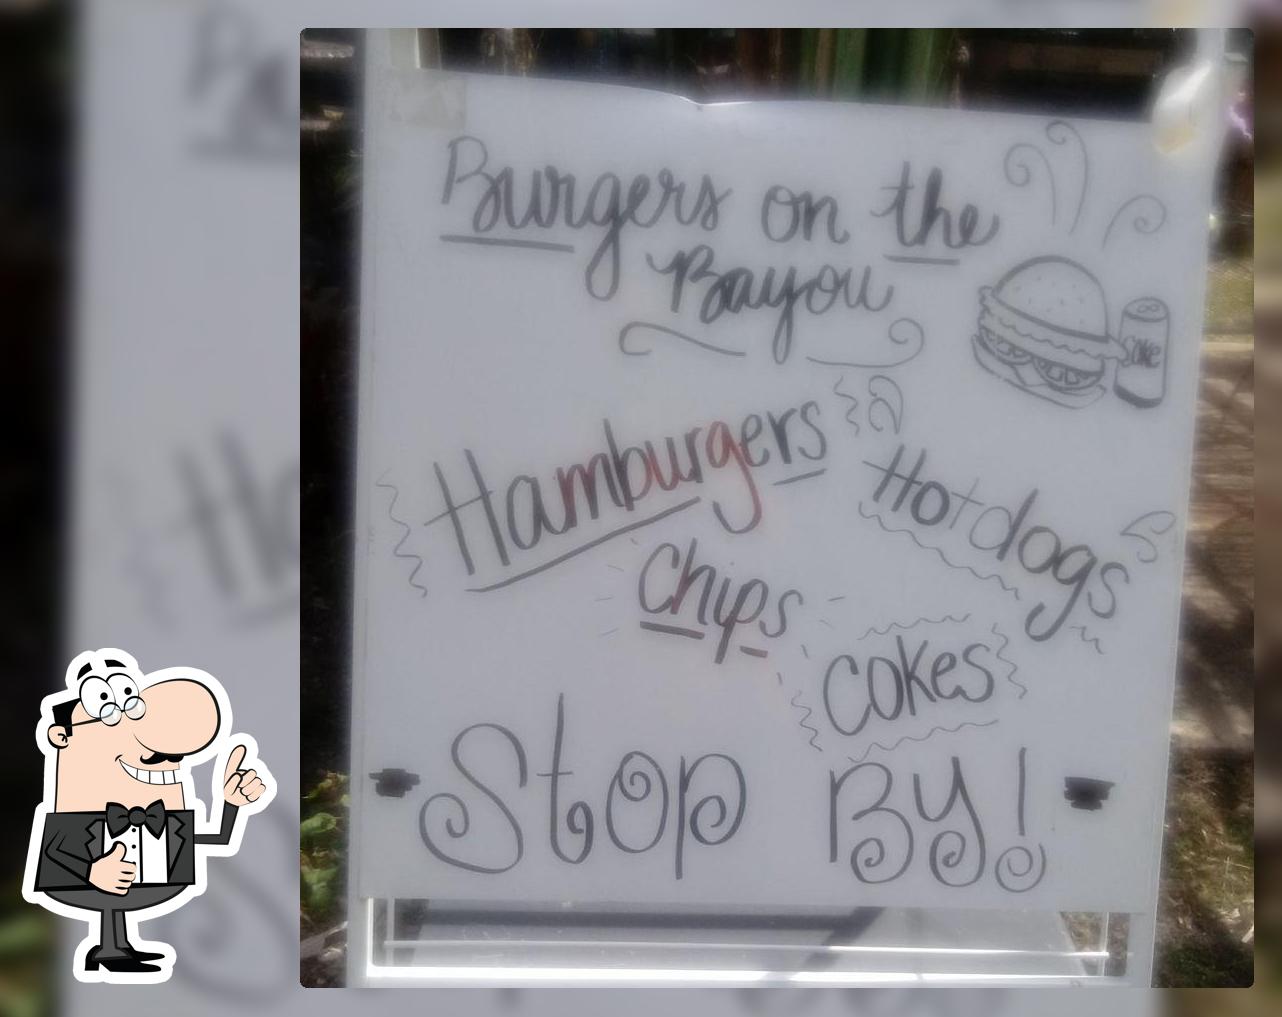 Burgers on the
Bayou
Coke
Hamburgers
Hotdogs
Chips
Cokes
Stop By!